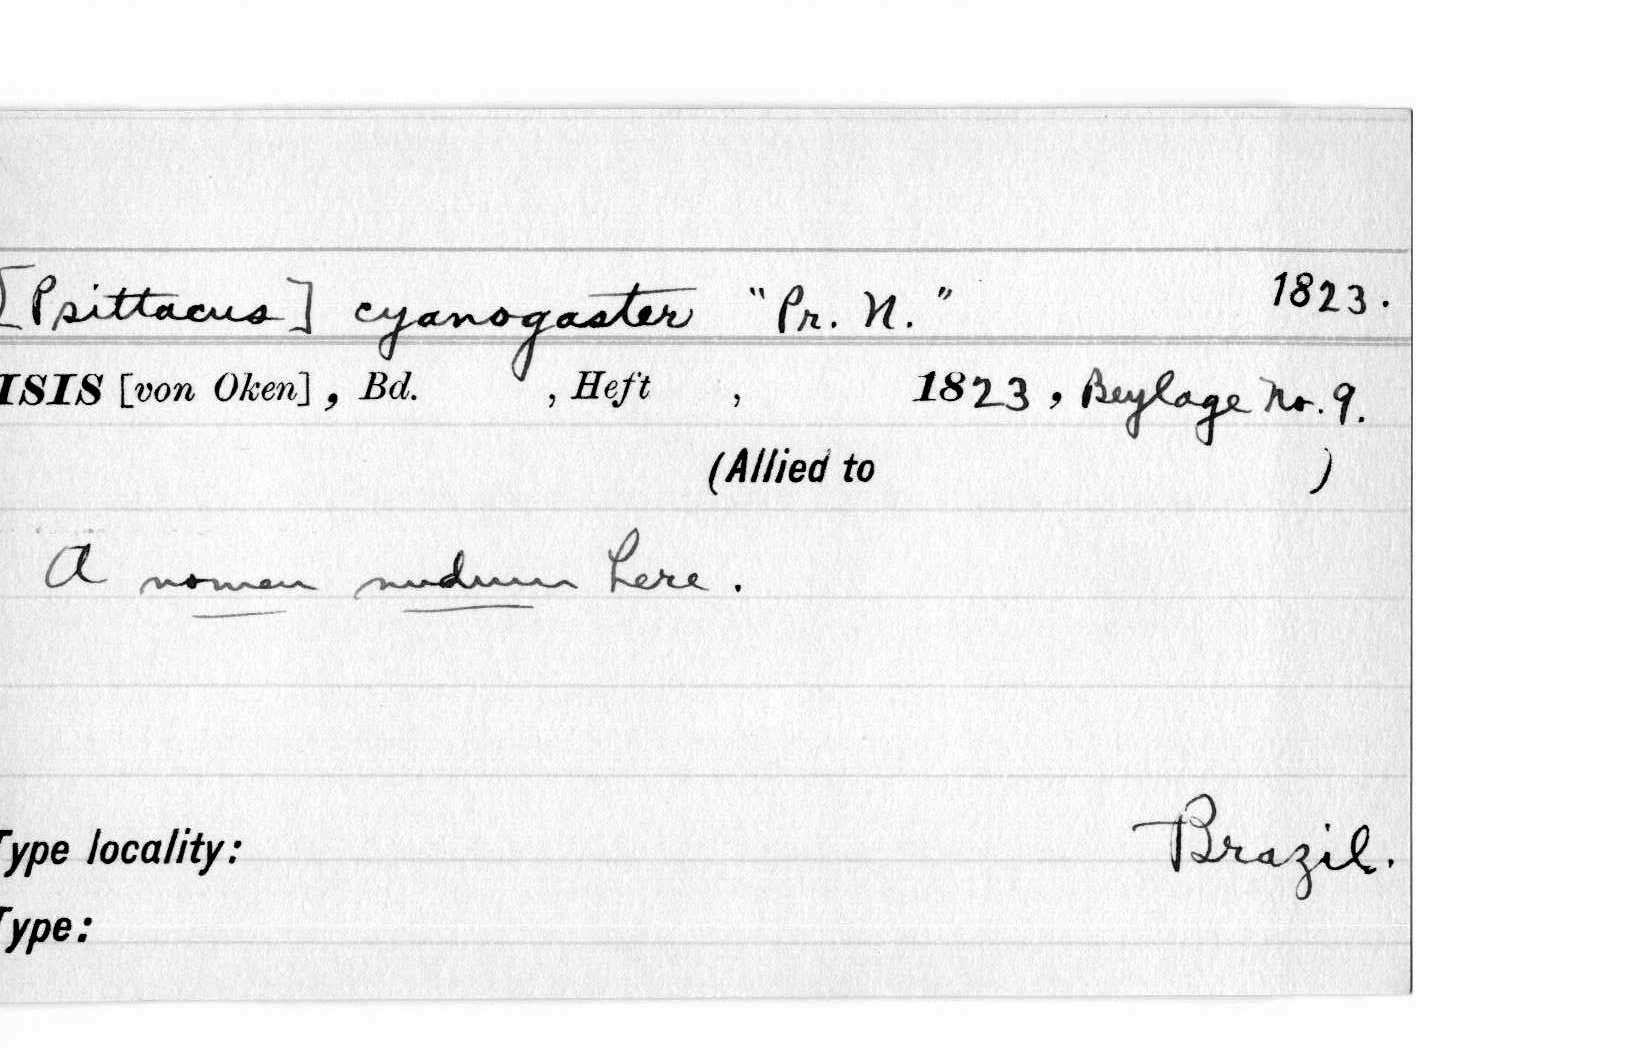 [Psittacus] cyanogaster "Pr. N." 1823.
ISIS [von Oken], Bd. , Heft , 1823, Beylage No. 9.
(Allied to )
A nomen nudum here.
Type locality: Brazil.
Type: